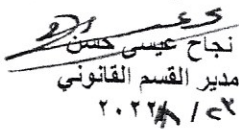 نجاح عيسى حسن
مدير القسم القانوني
٢٠٢٢/ /٢٣